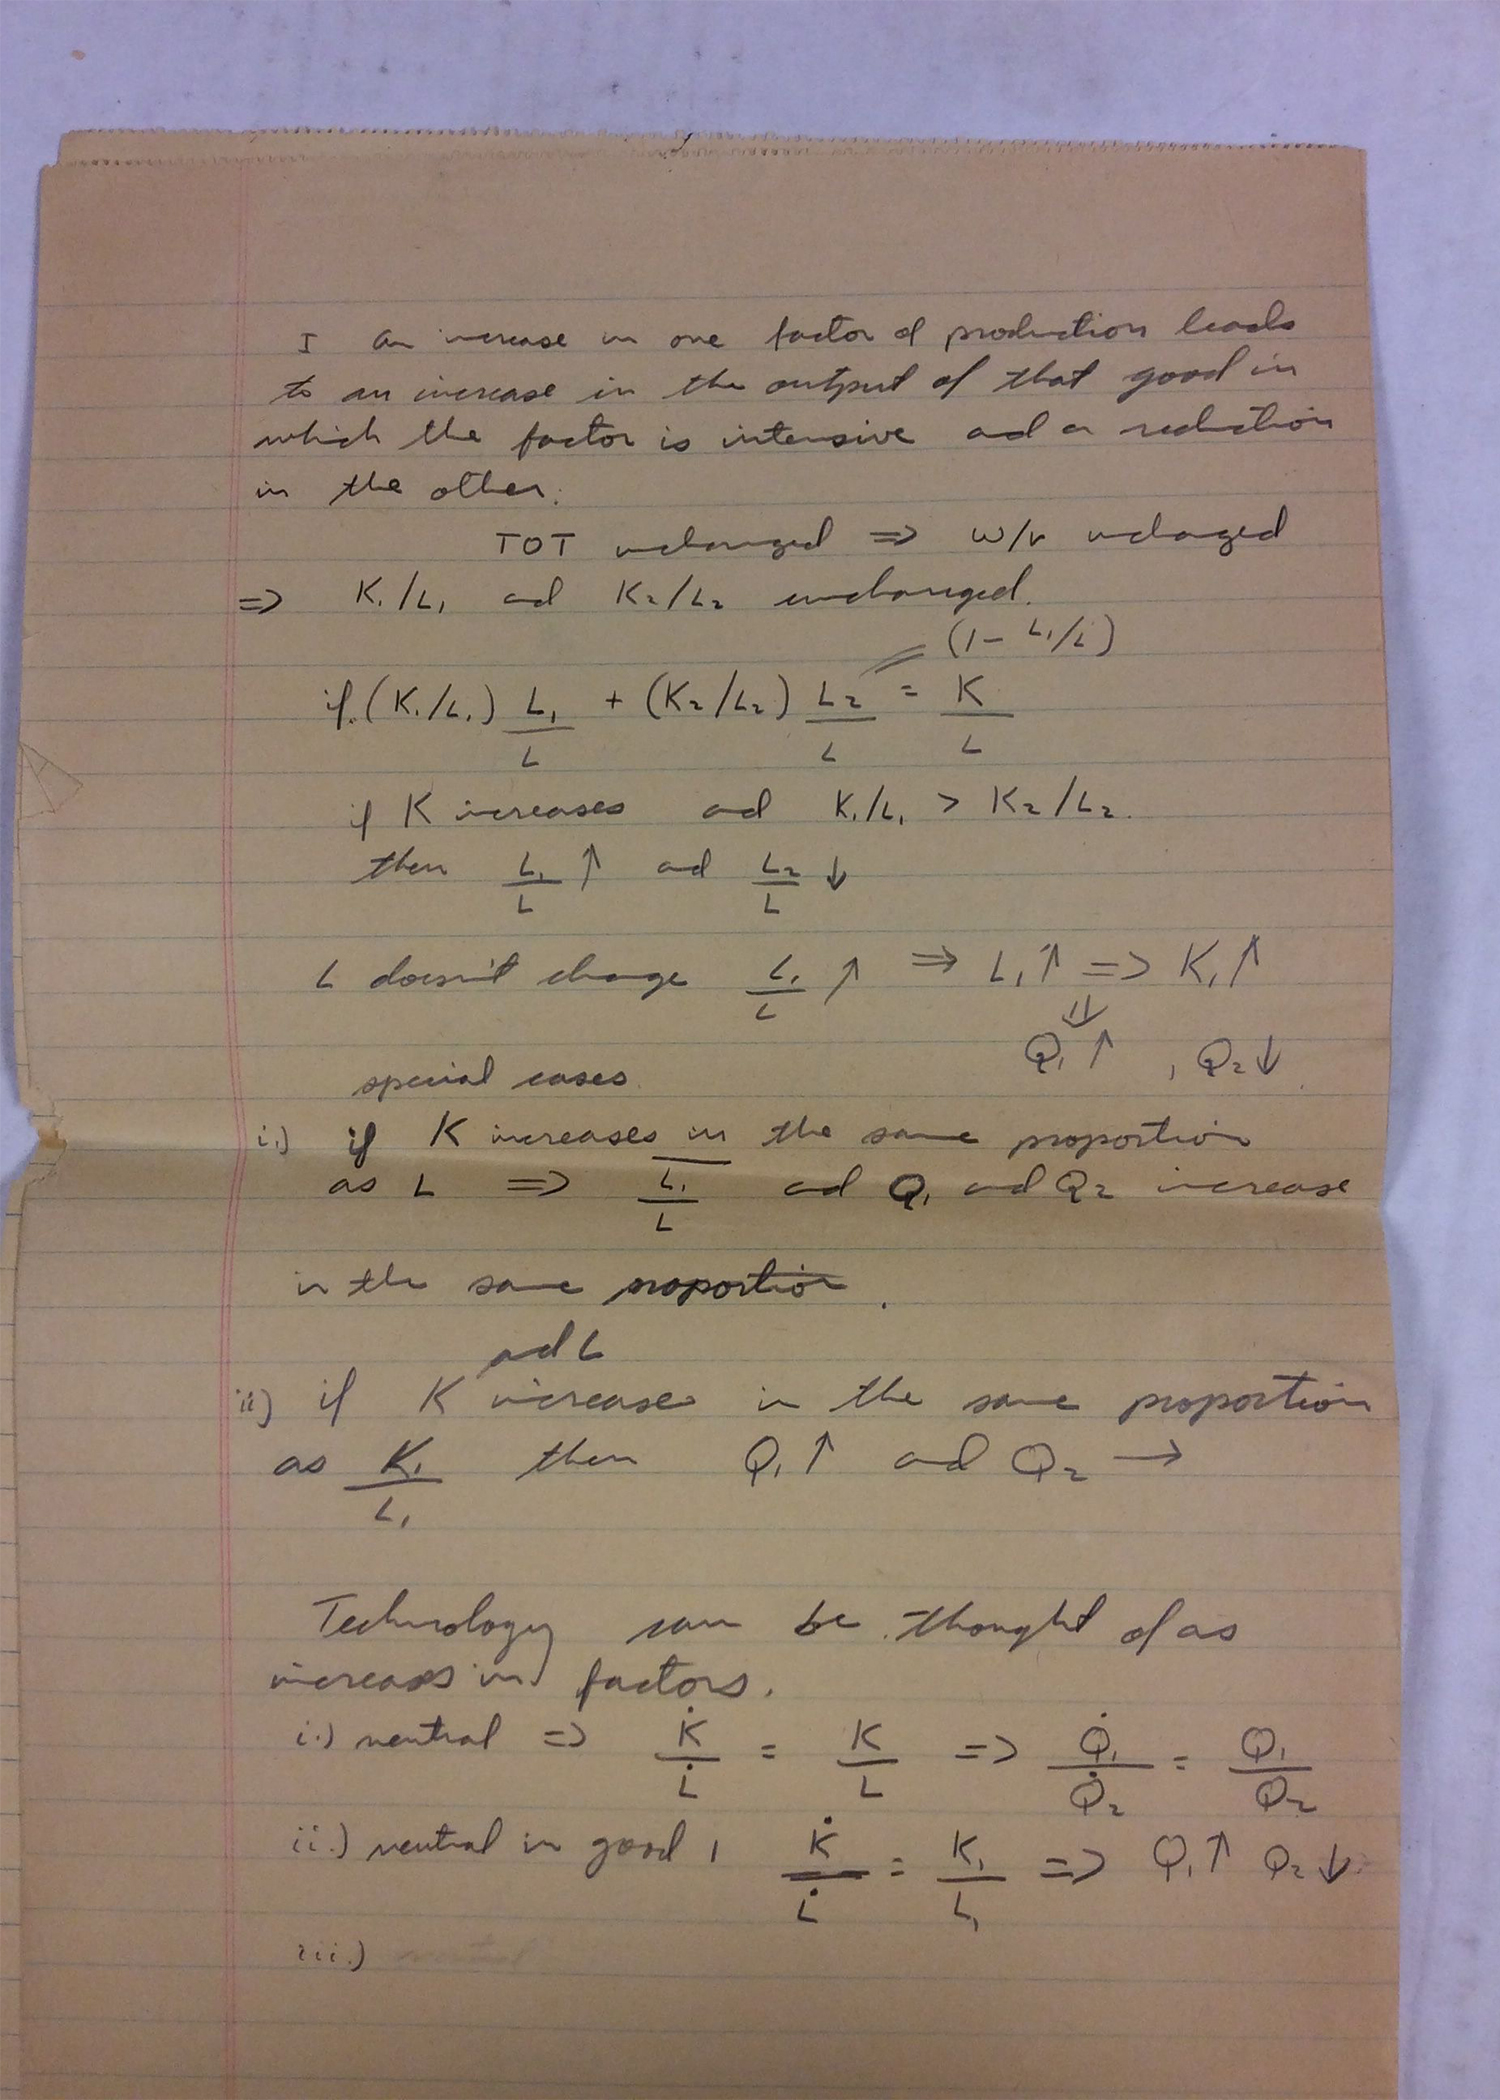 I an increase in one factor of production leads
to an increase in the output of that good in
which the factor is intensive and a reduction
in the other.
TOT unchanged => w/r unchanged
=> K₁/L₁ and K₂/L₂ unchanged.
(1 - L₁/L)
if (K₁/L₁) L₁/L + (K₂/L₂) L₂/L = K/L
if K increases and K₁/L₁ > K₂/L₂.
then L₁/L ↑ and L₂/L ↓
L doesn't change L₁/L ↑ => L₁↑ => K₁↑
⇓
Q₁↑ , Q₂↓
special cases
i.) if K increases in the same proportion
as L => L̅₁/L and Q₁ and Q₂ increase
in the same proportion.
and L
ii) if K increases in the same proportion
as K₁/L₁ then Q₁↑ and Q₂ →
Technology can be thought of as
increases in factors.
i.) neutral => K̇/L̇ = K/L => Q̇₁/Q̇₂ = Q₁/Q₂
ii.) neutral in good 1 K̇/L̇ = K₁/L₁ => Q₁↑ Q₂↓
iii.)